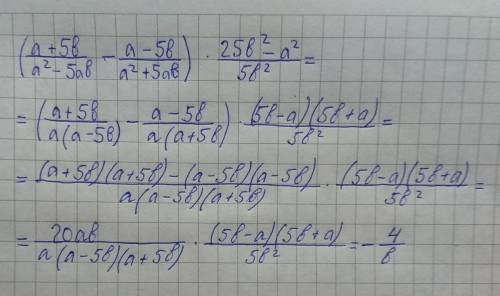 (a+5b/a²-5ab - a-5b/a²+5ab) · 25b²-a²/5b² =
= (a+5b/a(a-5b) - a-5b/a(a+5b)) · (5b-a)(5b+a)/5b² =
= (a+5b)(a+5b)-(a-5b)(a-5b)/a(a-5b)(a+5b) · (5b-a)(5b+a)/5b² =
= 20ab/a(a-5b)(a+5b) · (5b-a)(5b+a)/5b² = - 4/b